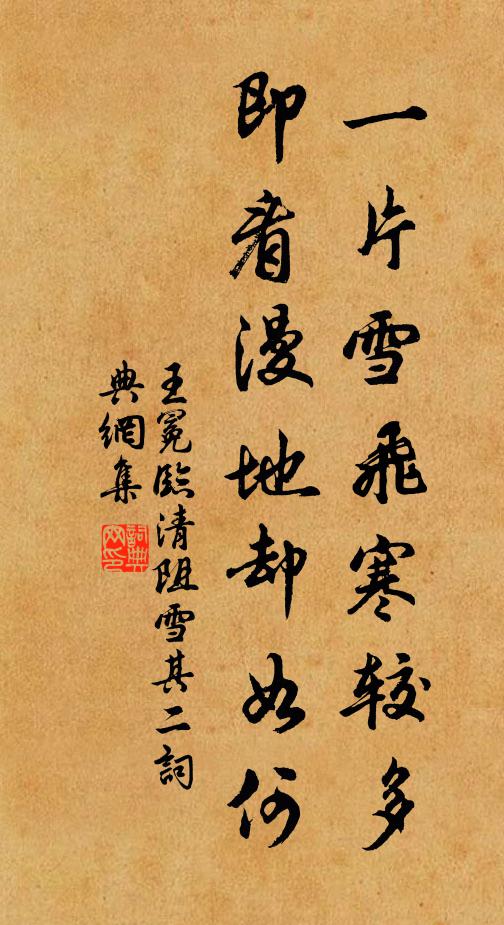 一片雪飛寒较多
即看漫地却如何
王冕臨清阻雪其二詞
典網集
詞典
网印